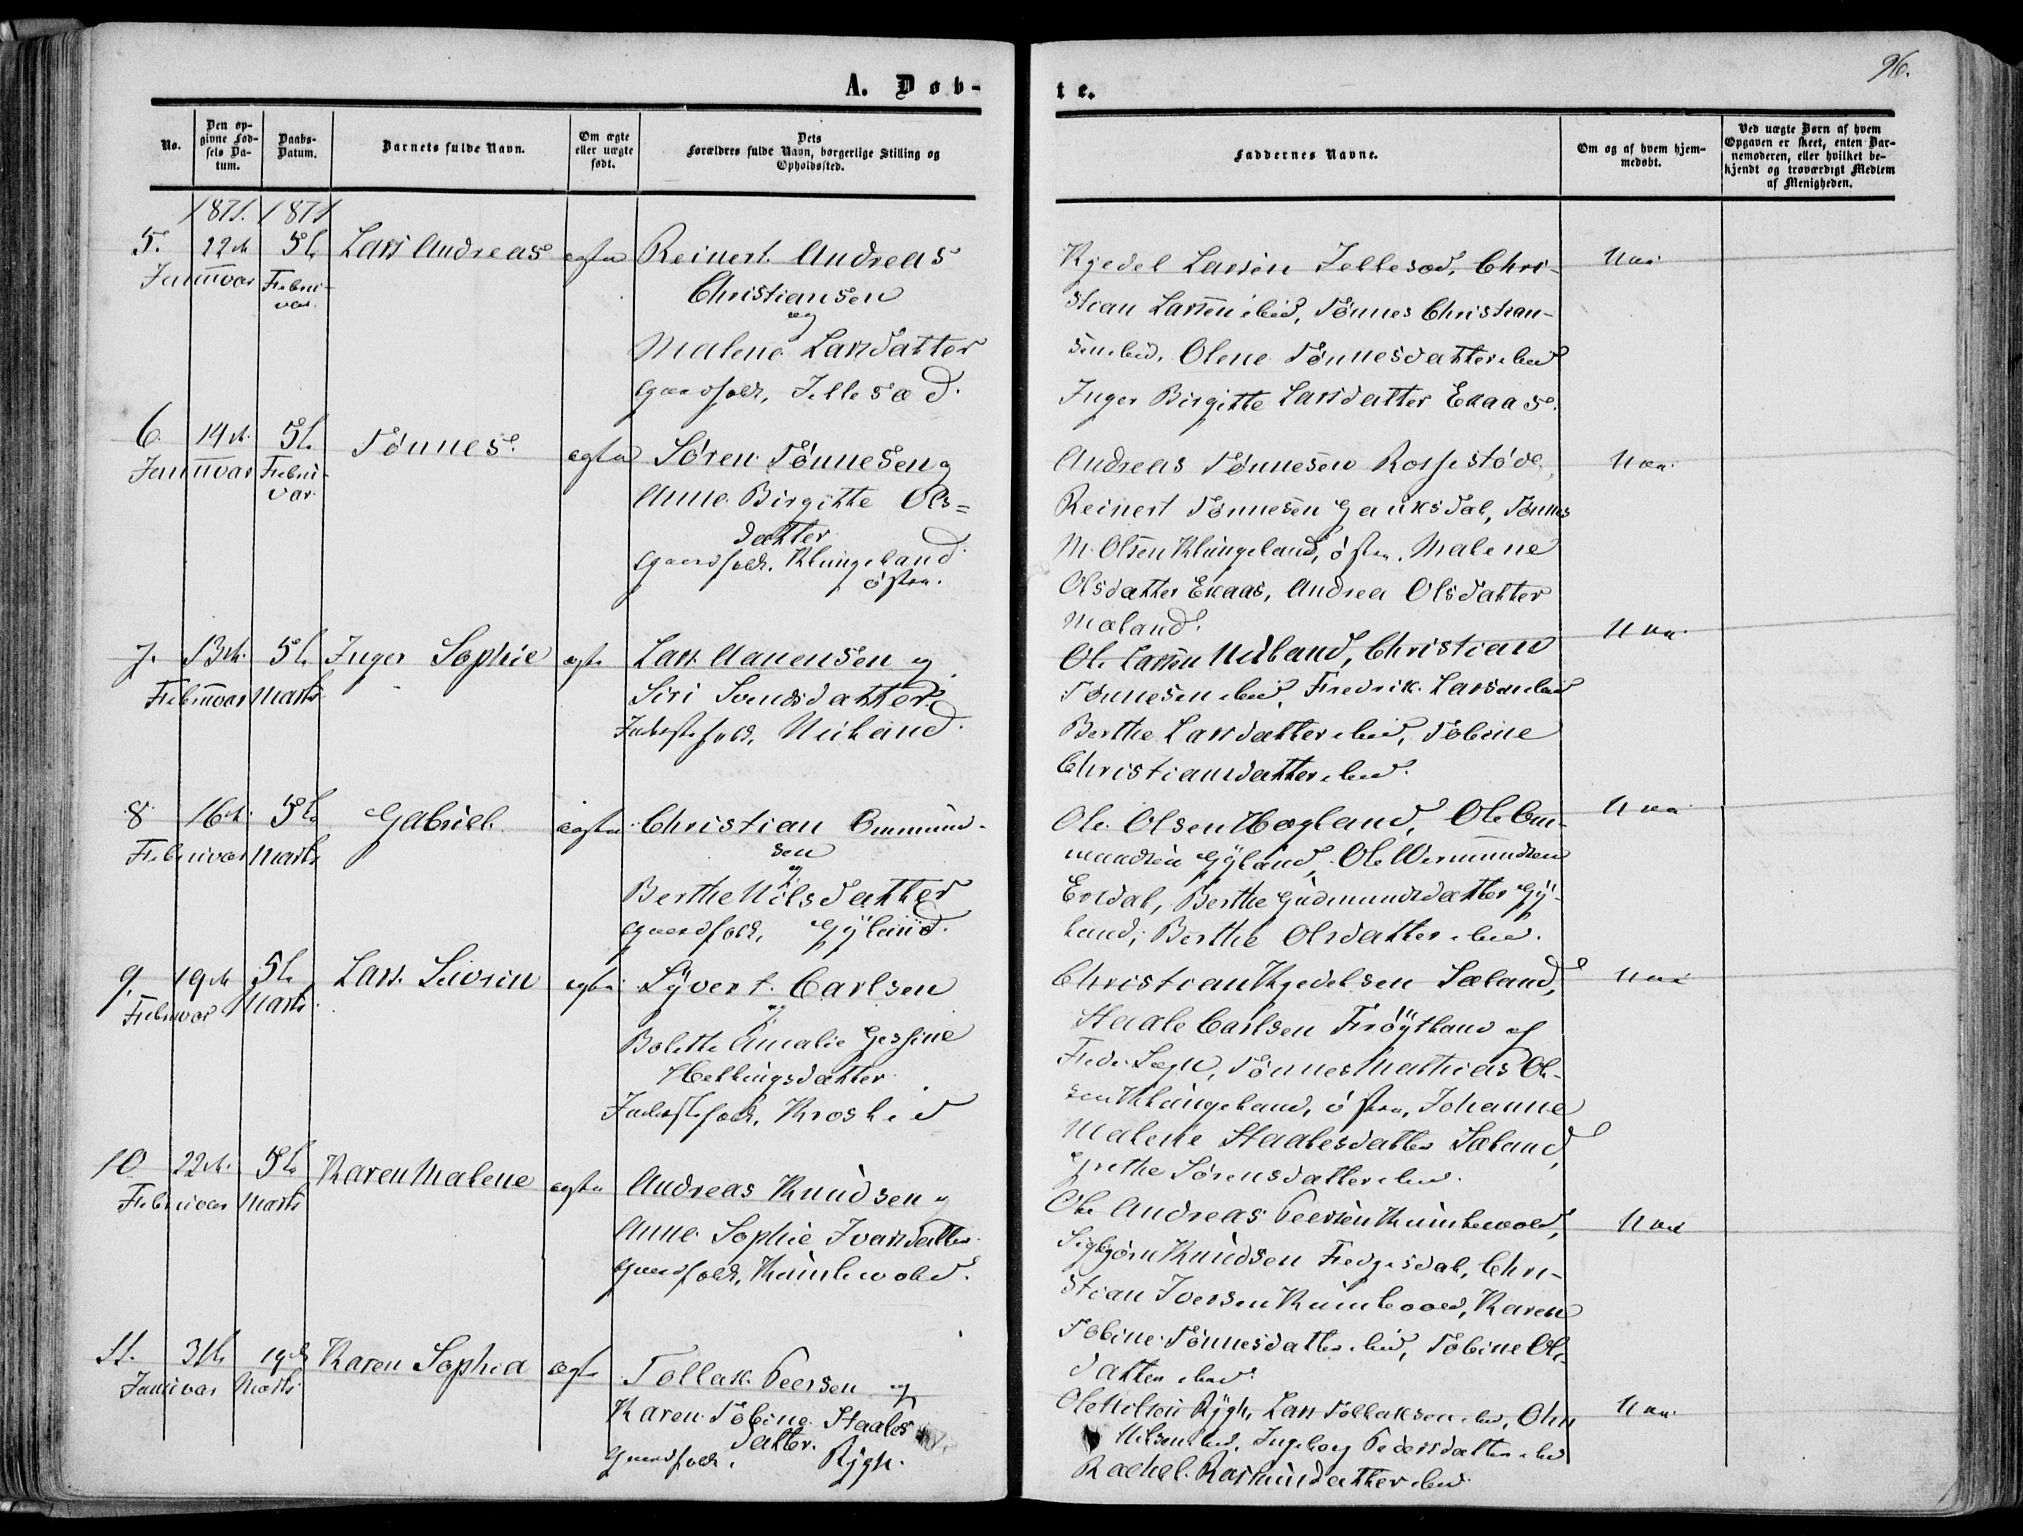 96.
A. Døb-
te.
No.
Den op-
givne Fød-
sels Da-
tum.
Daabs-
Datum.
Barnets fulde Navn.
Om ægte
eller uægte
født.
Dets
Forældres fulde Navn, borgerlige Stilling og
Opholdssted.
Faddernes Navne.
Om og af hvem hjem-
medøbt.
Ved uægte Børn af hvem
Opgaven er skeet, enten Bar-
nemoderen, eller hvilket be-
kjendt og troværdigt Medlem
af Menigheden.
1871. 1871
5. 22de 5te Lars Andreas ægte Reinert Andreas
Januar Februar
Christiansen
og
Malene Larsdatter
Gaardfolk, Jellesæd.
Kjedel Larsen Jellesæd, Chri-
stian Larsen ibid, Tønnes Christian-
sen ibid, Olene Tønnesdatter ibid
Inger Birgitte Larsdatter Ekaas.
6. 14de 5te Tønnes. ægte Søren Tønnesen og
Januar Februar
Anne Birgitte Ols=
datter
Gaardfolk, Klungeland
østre.
Andreas Tønnesen
Reinert Tønnesen Gauksdal, Tønnes
M. Olsen Klungeland, østre, Malene
Olsdatter Ekaas, Andrea Olsdatter
Mæland.
7. 13de 5te Inger Sophie ægte Lars Aanensen og
Februar Marts
Siri Svendsdatter
folk, Nuland.
Ole Larsen Nuland, Christian
Tønnesen ibid, Fredrik Larsen ibid
Berthe Larsdatter ibid, Tobine
Christiansdatter ibid.
8. 16de 5te Gabriel. ægte Christian Ommund-
Februar Marts
sen
og
Berthe Nilsdatter
Gaardfolk, Gyland.
Ole Olsen Høgland, Ole Om-
mundsen Gyland, Ole Wermundsen
Erdal, Berthe Gudmundsdatter Gy-
land, Berthe Olsdatter ibid.
9. 19de 5te Lars Severin ægte Syvert Carlsen
Februar Marts
og
Bolette Amalie Gessine
Hellingsdatter
folk, Kroshed
Christian Kjedelsen Sæland,
Staale Carlsen Frøytland af
Fede Sogn, Tønnes Mathias Ol-
sen Klungeland, østre, Johanne
Malene Staalesdatter Sæland,
Grethe Sørensdatter ibid.
10 22de 5te Karen Malene ægte Andreas Knudsen og
Februar Marts
Anne Sophie Ivarsdatter
Gaardfolk, Kumlevold.
Ole Andreas Peersen Kumlevold,
Sigbjørn Knudsen Fedjesdal, Chri-
stian Iversen Kumlevold, Karen
Tobine Tønnesdatter ibid, Tobine Ols-
datter ibid.
11. 31te 19de Karen Sophia ægte Tollak Peersen og
Januar Marts
Karen Tobine Staales
datter.
Gaardfolk, Rygh.
Ole Nilsen Rygh, Lars Tollaksen ibid,
Nilsen ibid, Ingeborg Pedersdatter ibid
Rachel Rasmusdatter ibid.